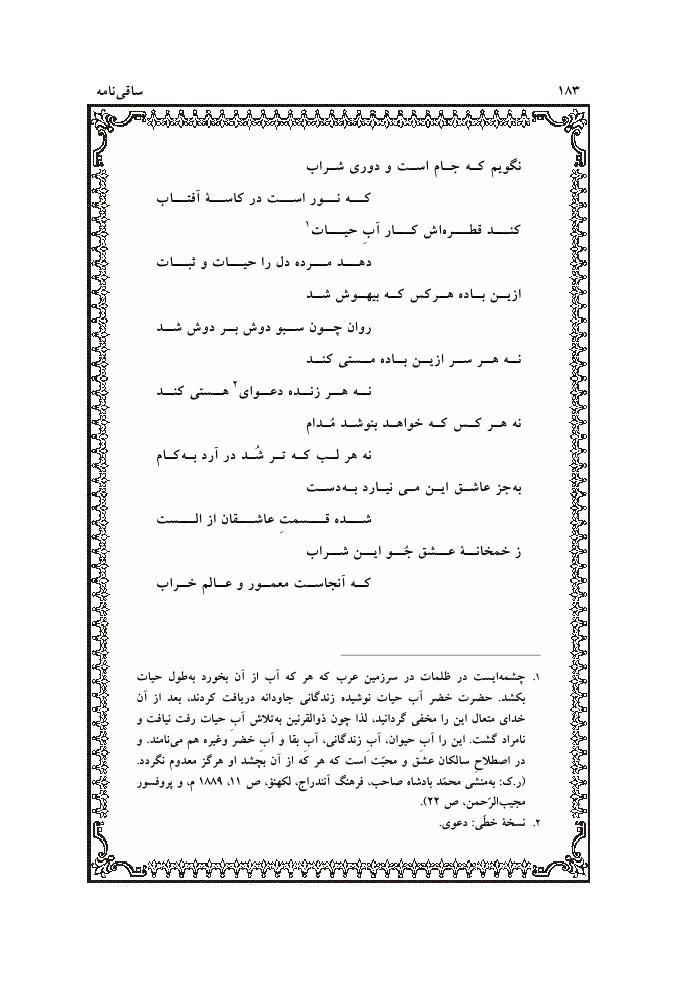 ساقی‌نامه ۱۸۳
نگویم که جام است و دوری شراب
که نور است در کاسهٔ آفتاب
کند قطره‌اش کار آبِ حیات۱
دهد مرده دل را حیات و ثبات
ازین باده هرکس که بیهوش شد
روان چون سبو دوش بر دوش شد
نه هر سر ازین باده مستی کند
نه هر زنده دعوای۲ هستی کند
نه هر کس که خواهد بنوشد مُدام
نه هر لب که تر شُد در آرد به‌کام
به‌جز عاشق این می نیارد به‌دست
شده قسمتِ عاشقان از الست
ز خمخانهٔ عشق جُو این شراب
که آنجاست معمور و عالم خراب
۱. چشمه‌ایست در ظلمات در سرزمین عرب که هر که آب از آن بخورد به‌طول حیات
بکشد. حضرت خضر آب حیات نوشیده زندگانی جاودانه دریافت کردند، بعد از آن
خدای متعال این را مخفی گردانید، لذا چون ذوالقرنین به‌تلاش آبِ حیات رفت نیافت و
نامراد گشت. این را آبِ حیوان، آبِ زندگانی، آبِ بقا و آبِ خضر وغیره هم می‌نامند. و
در اصطلاحِ سالکان عشق و محبّت است که هر که از آن بچشد او هرگز معدوم نگردد.
(ر.ک: به‌منشی محمّد بادشاه صاحب، فرهنگ آنندراج، لکهنؤ، ص ۱۱، ۱۸۸۹ م، و پروفسور
مجیب‌الرّحمن، ص ۲۲).
۲. نسخهٔ خطّی: دعوی.